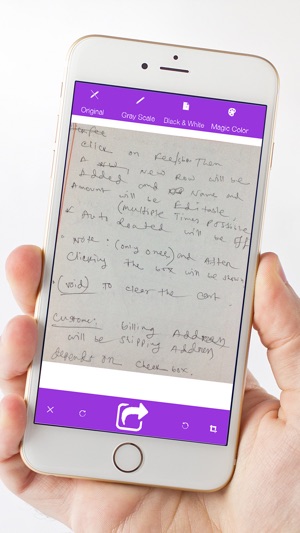 Original Gray Scale Black & White Magic Color
Click on Fee/other Them
A new Row will be
Added and Name and
Amount will be Editable,
(Multiple Times Possible
& Auto Rented will be Off
• Note: (only once) and After
Clicking the box will be show
• (Void) To clear the cart.
Customer: billing Address
will be shipping Address
depends on Check box.